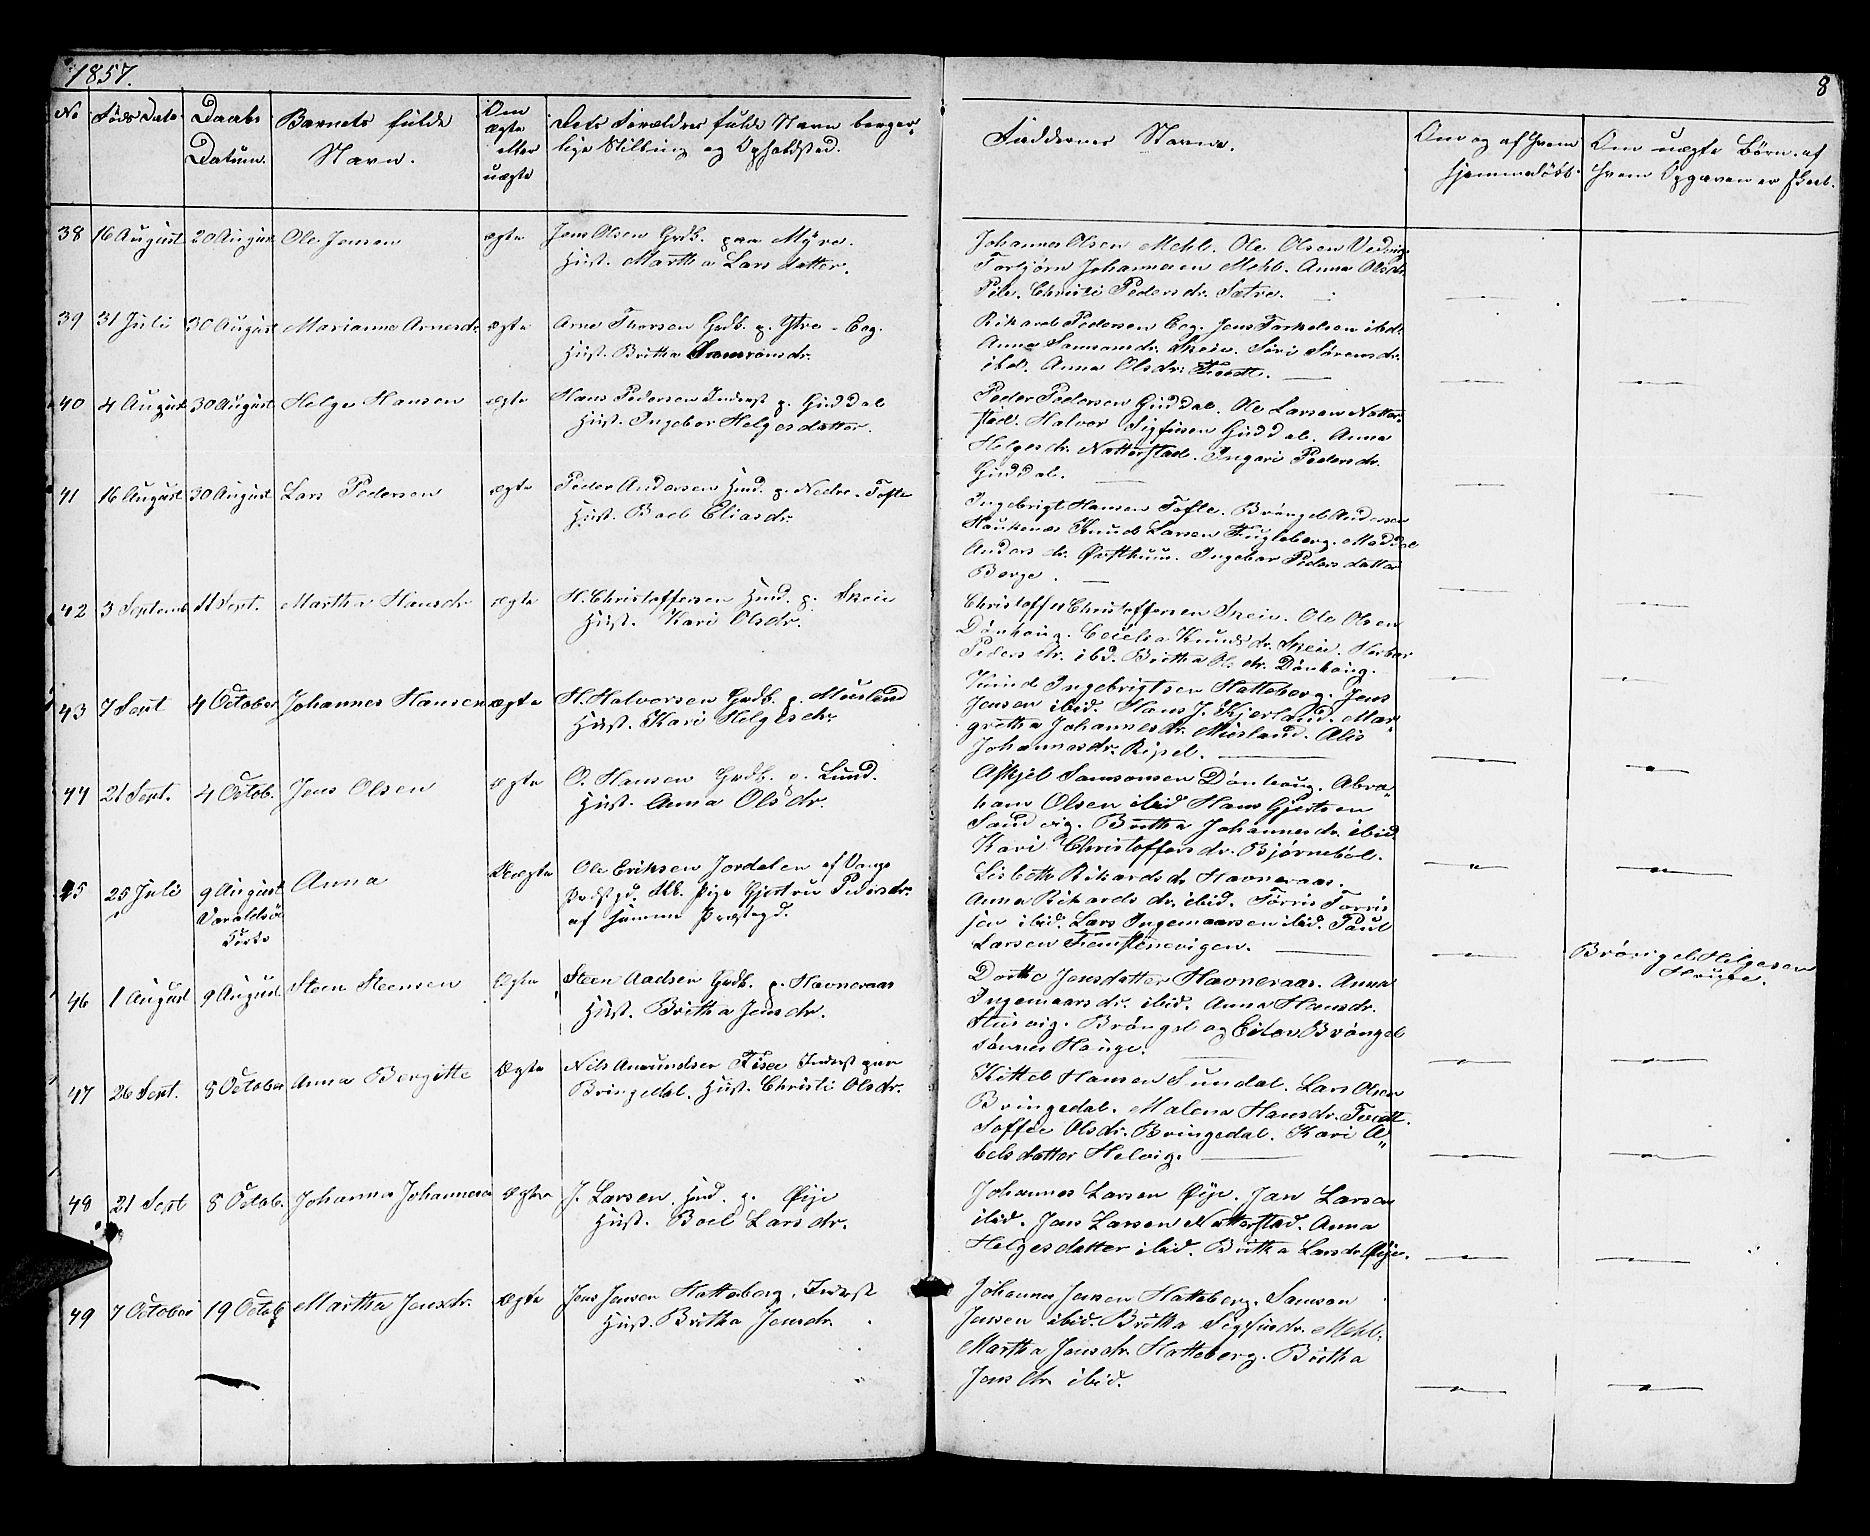 1857.
8
No Føds Dato Daabs Datum. Barnets fulde Navn. Om ægte eller uægte Dets Forældres fulde Navn borgerlige Stilling og Opholdsted.
Faddernes Navne. Om og af hvem hjemmedöbt. Om uægte Börn, af hvem Opgaven er skeet.
38 16 August 20 August Ole Jensen ægte Jens Olsen Grdb. paa Myre.
Hust. Martha Larsdatter.
Johannes Olsen Mehl. Ole Olsen Vedvig.
Torbjörn Johannesen Mehl. Anna Olsdr.
Pile. Christi Pedersdr. Sætre.
39 31 Juli 30 August Marianna Arnesdr. ægte Arne Thorsen Grdb. p. Ytre-Eeg.
Hust. Britha Samsonsdr.
Rikard Pedersen Eeg. Jens Torkelsen ibd.
Anna Samsonsdr. Skeie. Siri Sörensdr.
ibd. Anna Olsdr. Tvedte.
40 4 August 30 August Helge Hansen ægte Hans Pedersen Inderst p. Guddal
Hust. Ingebor Helgesdatter.
Peder Pedersen Guddal. Ole Larsen Natter-
stad. Halvor Sigfusen Guddal. Anna
Helgesdr. Natterstad. Ingari Pedersdr.
Guddal.
41 16 August 30 August Lars Pedersen ægte Peder Andersen Hmd. p. Nedre-Tofte
Hust. Boel Eliasdr.
Ingebrigt Hansen Tofte. Bröngel Andersen
Haukenæs Knud Larsen Fugleberg. Maddal
Andersdr. Østhuun. Ingebor Pedersdatter
Berge.
42 3 Septemb 11 Sept. Martha Hansdr. ægte H. Christoffersen Hmd. p. Skeie
Hust. Kari Olsdr.
Christoffer Christoffersen Skeie. Ole Olsen
Dönhaug. Ceielia Knudsdr. Skeie. Herbor
Pedersdr. ibd. Britha Olsdr. Dönhaug.
43 7 Sept 4 October Johannes Hansen ægte H. Halvorsen Grdb. p. Musland
Hust. Kari Helgesdr.
Knud Ingebrigtsen Hatteberg. Jens
Jensen ibid. Hans J. Kjerland. Mar-
gretha Johannesdr. Musland. Alis
Johannesdr. Ripel.
44 21 Sept. 4 Octob. Jens Olsen ægte O. Hansen Grdb. p. Lund.
Hust. Anna Olsdr.
Askjel Samsonsen Dönhaug. Abra-
ham Olsen ibid Hans Gjertsen
Sandvig. Britha Johannesdr. ibid
Kari Christoffersdr. Björneböl.
45 25 Juli 9 August Varaldsö Kirke Anna Uægte Ole Eriksen Jordalen af Vangs
Præstgd. Ukk. Pige Gjertru Pedersdr.
af samme Præstegd.
Lisbeth Rikardsdr Havneraas.
Anna Rikardsdr. ibid. Törris Torris
sen ibid. Lars Ingemaarsen ibid. Paul
Larsen Femstenevigen.
Bröngel Helgesen
Hougse.
46 1 August 9 August Steen Steensen Ægte Steen Aadsen Grdb. p. Havneraas
Hust. Britha Jensdr.
Dorthe Jensdatter Havneraas. Anna
Ingemaarsdr. ibid. Anna Hansdr.
Stusvig. Bröngel og Eilor Bröngel
sönner Hauge.
47 26 Sept. 8 October Anna Bergitte Ægte Nils Amundsen Risøe Inderst paa
Bringedal. Hust. Christi Olsdr.
Kittel Hansen Sundal. Lars Olsen
Bringedal. Malena Hansdr. Tvedt.
Soffie Olsdr. Bringedal. Kari A-
belsdatter Helvig.
48 21 Sept 8 Octob. Johanna Johannesen Ægte J. Larsen. Hmd. p. Øije
Hust. Boel Larsdr.
Johannes Larsen Øije. Jan Larsen
ibid. Jens Larsen Natterstad. Anna
Helgesdatter ibid. Britha Larsdr. Øije.
49 7 October 19 Octob Martha Jensdr. Ægte Jens Jensen Hatteberg. Inderst
Hust. Britha Jensdr.
Johannes Jensen Hatteberg. Samson
Jensen ibid. Britha Sigfusdr. Mehl.
Martha Jensdr. Hatteberg. Britha
Jensdr. ibid.